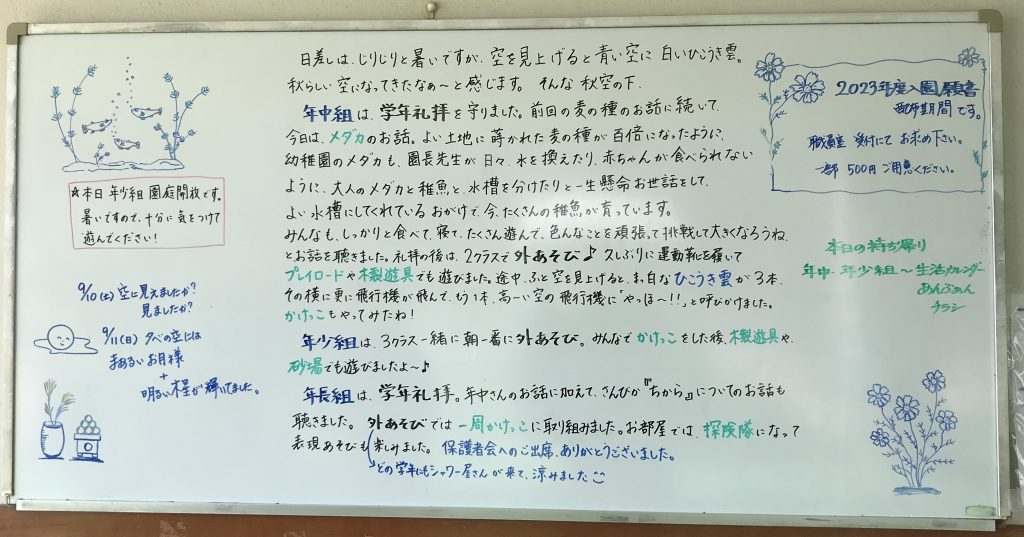 日差しは、じりじりと暑いですが、空を見上げると青い空に白いひこうき雲。
秋らしい空になってきたなぁ〜と感じます。そんな秋空の下、
年中組は、学年礼拝を守りました。前回の麦の種のお話に続いて、
今日は、メダカのお話。よい土地に蒔かれた麦の種が百倍になったように、
幼稚園のメダカも、園長先生が日々、水を換えたり、赤ちゃんが食べられない
ように、大人のメダカと稚魚と、水槽を分けたりと一生懸命お世話をして、
よい水槽にしてくれているおかげで、今、たくさんの稚魚が育っています。
みんなも、しっかりと食べて、寝て、たくさん遊んで、色んなことを頑張って挑戦して大きくなろうね、
とお話を聴きました。礼拝の後は、2クラスで外あそび♪久しぶりに運動靴を履いて
プレイロードや木製遊具でも遊びました。途中、ふと空を見上げると、お白なひこうき雲が3本、
その横に更に飛行機が飛んで、もう1本、高〜い空の飛行機に"やっほ〜!!"と呼びかけました。
かけっこもやってみたね!
年少組は、3クラス一緒に朝一番に外あそび。みんなでかけっこをした後、木製遊具や、
砂場でも遊びましたよ〜♪
年長組は、学年礼拝。年中さんのお話に加えて、さんびか『ちから』についてのお話も
聴きました。外あそびでは一周かけっこに取り組みました。お部屋では、探険隊になって
表現あそびも楽しみました。保護者会へのご出席、ありがとうございました。
どの学年にもシャワー屋さんが来て、涼みました
☆本日年少組園庭開放です。
暑いですので、十分に気をつけて
遊んでください!
9/10(土)空に見えましたか?
見ましたか?
9/11(日)夕べの空には
まぁるいお月様
+
明るい木星が輝いてました。
2023年度入園願書
配布期間です。
職員室受付にてお求め下さい。
一部500円ご用意ください。
本日の持ち帰り
年中・年少組〜生活カレンダー
あんぷぁん
チラシ